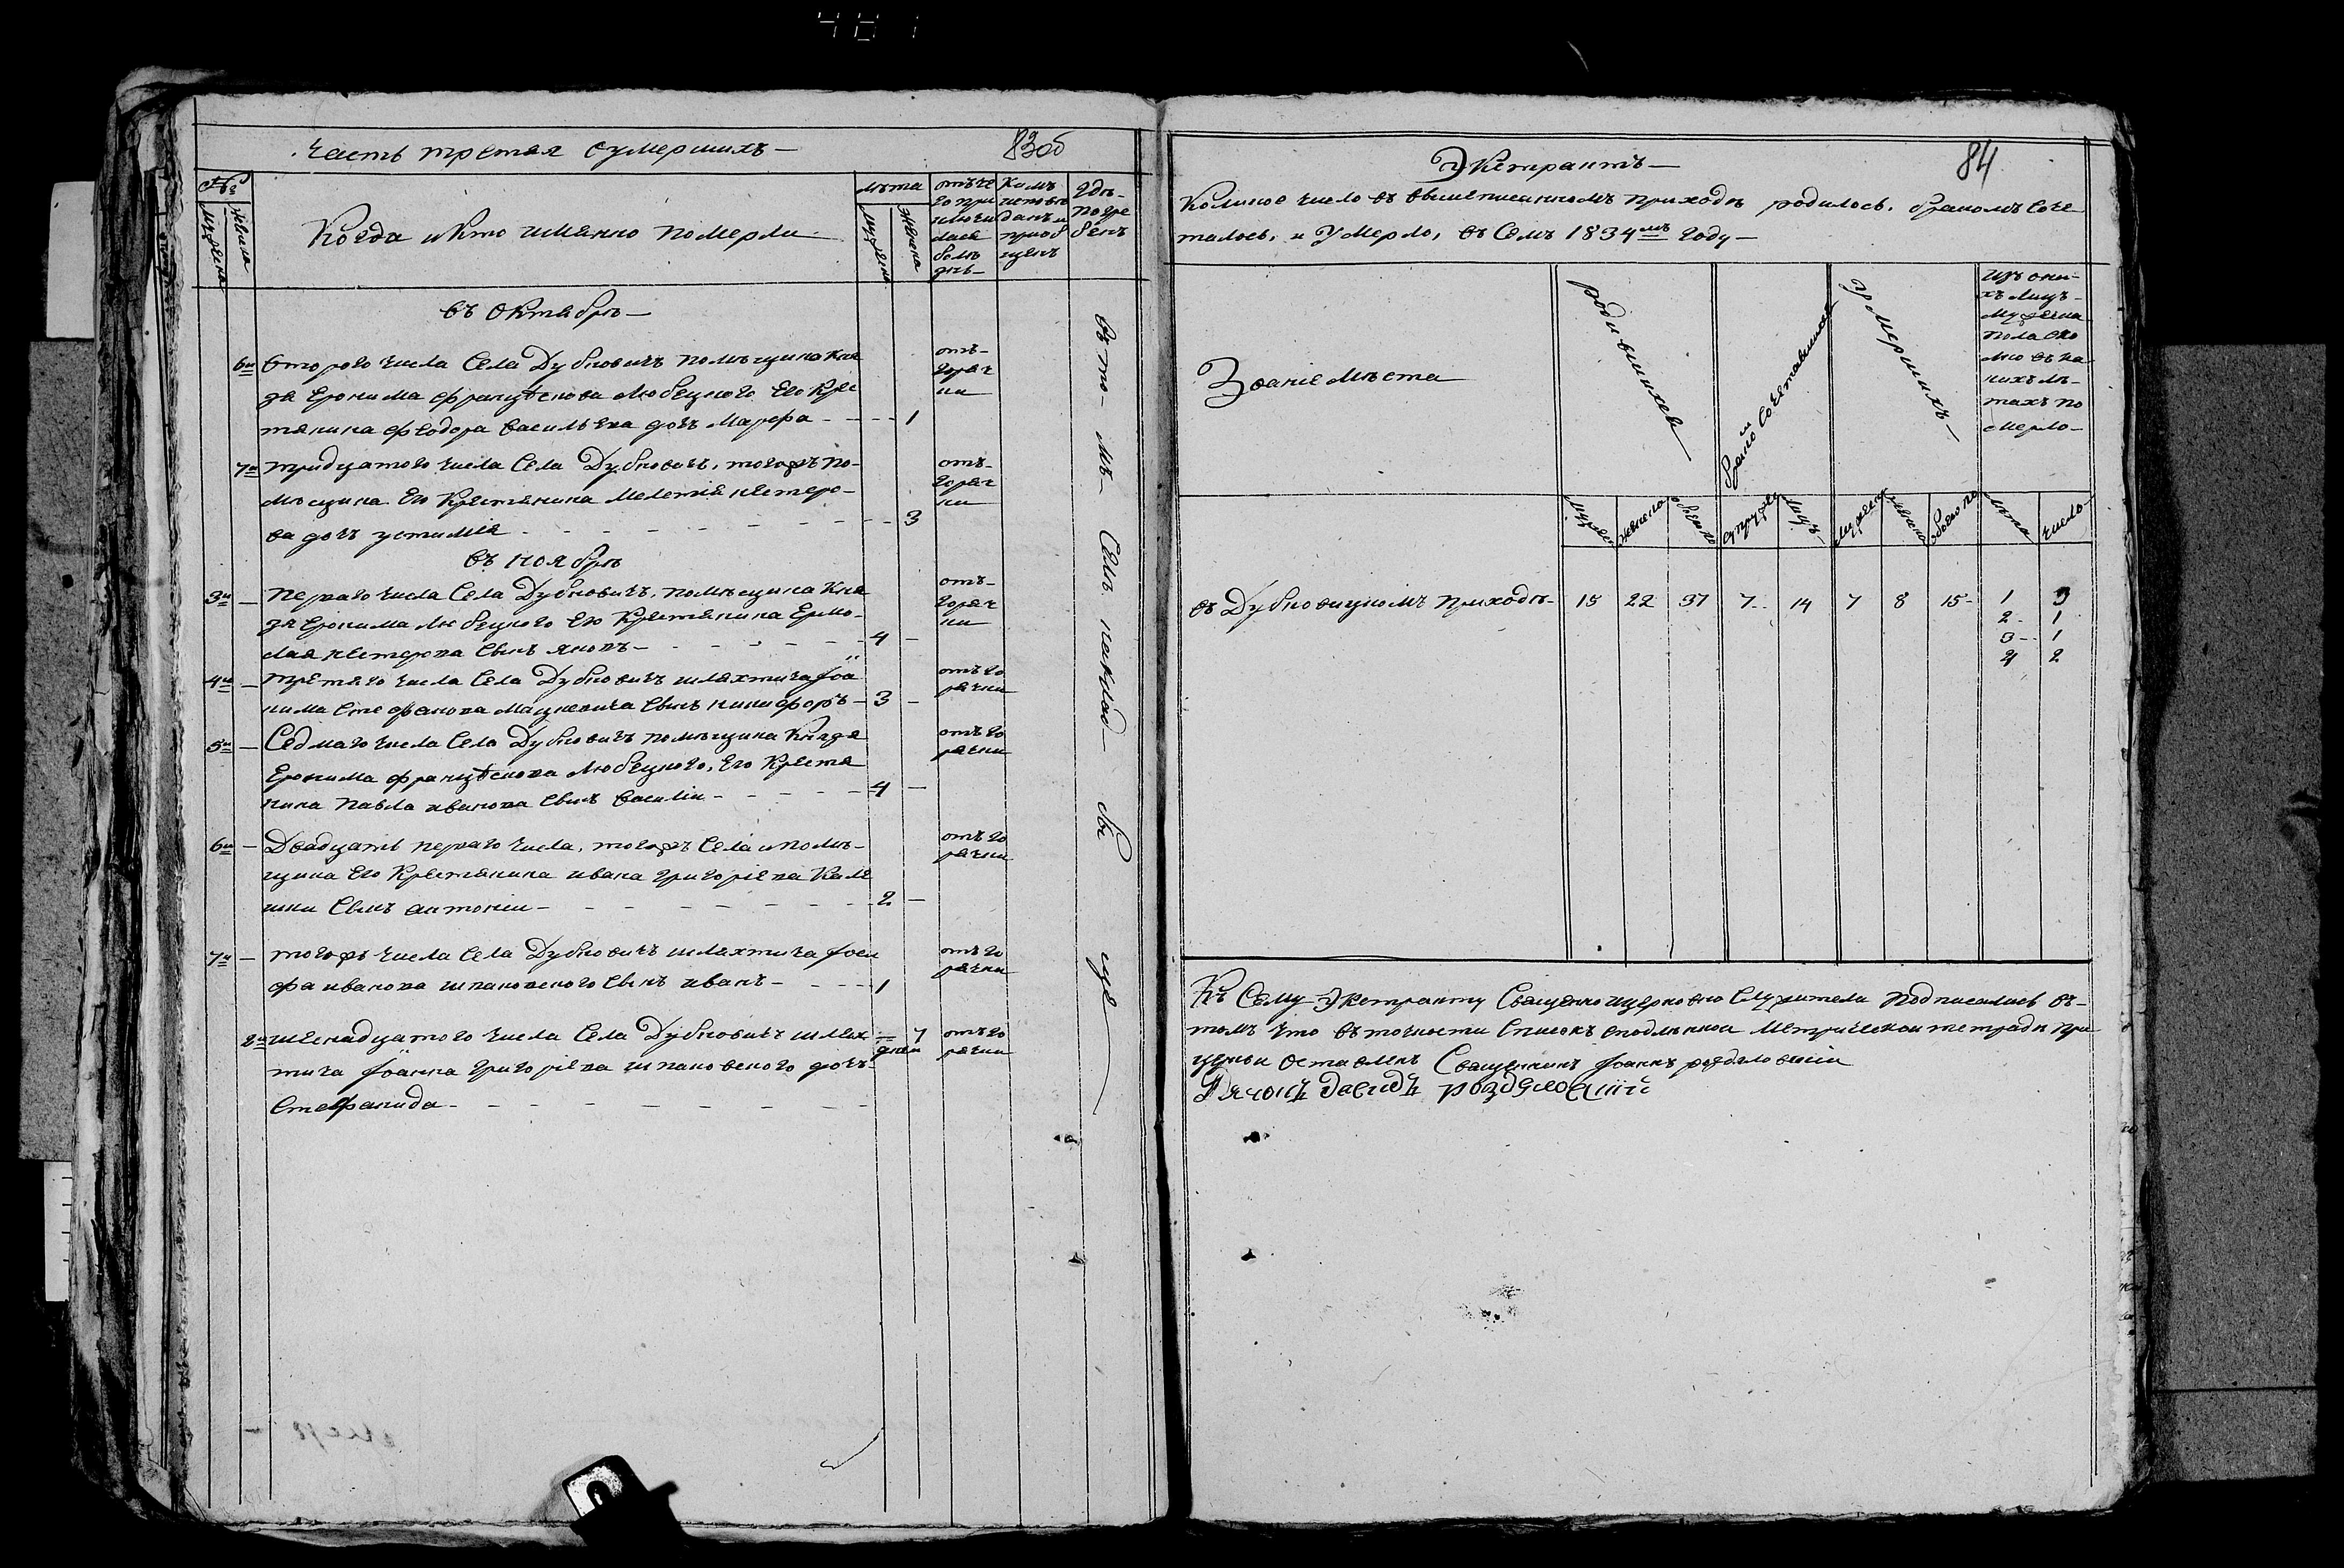 481
Часть третая оумершихъ —
83об
№а
Мужеска
Женска
Когда и кто именно померли
Лѣта
Мужеска
Женска
отъ че
го при
ключи
лася
болѣ
знь —
Кемъ
исповѣ
данъ и
приоб
щенъ
Гдѣ —
погре
бенъ
въ Октябрѣ —
6я второго числа Села Дубновичъ помѣщика Кня
зя Еронима францѣскова Любецкого Его Кре
тянина Феодора василѣва дочъ Марфа - - - 1
отъ —
горяч
ки
7я тридцатого числа Села Дубновичъ, тогожъ по —
мѣщика Его Крестянина Мелетія нестеро —
ва дочъ устимія - - - 3
отъ —
горяч
ки
въ ноябрѣ
3й — Перваго числа Села Дубновичъ, помѣщика Кня
зя Еронима Любецкого Его Крестянина Ермо —
лая нестерова Сынъ яковъ - - - 4 —
отъ —
горяч
ки
4й — третяго числа Села Дубновичъ шляхтича Іоа
кима Стефанова Мацкевича Сынъ никифоръ — 3 —
отъ го
рячки
5й — Седмаго числа Села Дубновичъ помѣщика Князя
Еронима францѣскова Любецкого, Его Крестя
нина Павла иванова Сынъ василій - - - 4 —
отъ го
рячки
6й — Двадцать перваго числа, тогожъ Села и помѣ —
щика Его Крестянина ивана григоріева Каля
шки Сынъ антоній - - - 2 —
отъ го
рячки
7й — тогожъ числа Села Дубновичъ шляхтича Іоси
фа иванова шпаковского Сынъ иванъ - - - 1
отъ го
рячки
8я шеснадцатого числа Села Дубновичъ шлях дней 7
тича Іоанна григоріева шпаковского дочъ
Стефанида - - -
отъ го
рячки
84
Экстрактъ —
Коликое число въ вышеписанномъ приходѣ родилось, бракомъ соче
талось, и умерло, въ семъ 1834мъ году —
Званіе мѣста
родившихся
бракомъ сочетавшихся
умершихъ —
изъ они —
хъ лицъ —
мужеска
пола ско
лко въ ка
кихъ лѣ —
тахъ по
мерло —
мужеска
женска
обоего
супружес
лицъ
мужеска
женска
обоего по
лѣта
число
въ Дубновицкомъ приходѣ — 15 22 37 7 14 7 8 15 1 3
2 1
3 1
4 2
Къ Сему Экстракту Священноицерковно Служители подписались въ —
томъ что въ точности Списокъ сподлѣнной Метрической тетради при
церкви оставленъ Священникъ Іоаннъ раздяловскій
Дячокъ Давидъ роздяловскій